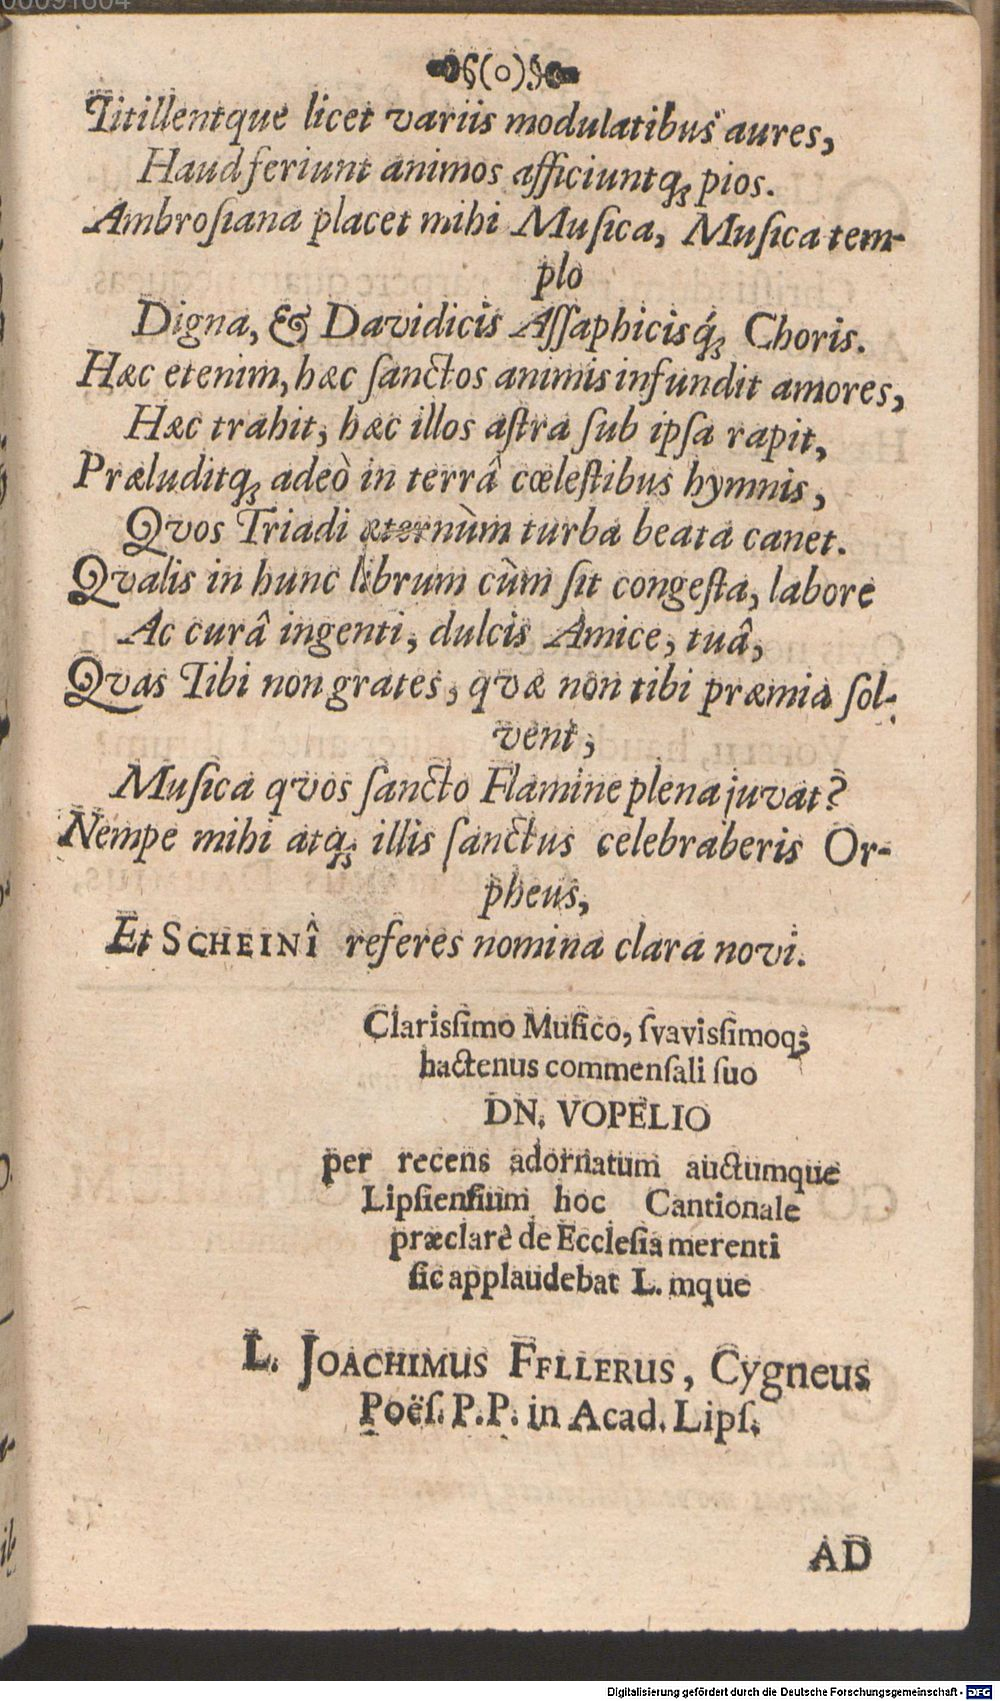 Titillentque licet variis modulatibus aures,
Haud feriunt animos afficiuntq; pios.
Ambroſiana placet mihi Muſica, Muſica tem-
plo
Digna, & Davidicis Aſſaphicisq́; Choris.
Hæc etenim, hæc ſanctos animis infundit amores,
Hæc trahit, hæc illos aſtra ſub ipſa rapit,
Præluditq; adeò in terrâ cœleſtibus hymnis,
Qvos Triadi æternùm turba beata canet.
Qvalis in hunc librum cùm ſit congeſta, labore
Ac curâ ingenti, dulcis Amice, tuâ,
Qvas Tibi non grates, qvæ non tibi præmia ſol-
vent,
Muſica qvos ſancto Flamine plena juvat?
Nempe mihi atq; illis ſanctus celebraberis Or-
pheus,
Et SCHEINÎ referes nomina clara novi.
Clarisſimo Muſico, ſvavisſimoq;
hactenus commenſali ſuo
DN. VOPELIO
per recens adornatum auctumque
Lipſienſium hoc Cantionale
præclarè de Eccleſia merenti
ſic applaudebat L. mque
L. JOACHIMUS FFLLERUS, Cygneus
Poëſ. P.P. in Acad. Lipſ.
AD
Digitalisierung gefördert durch die Deutsche Forschungsgemeinschaft - DFG